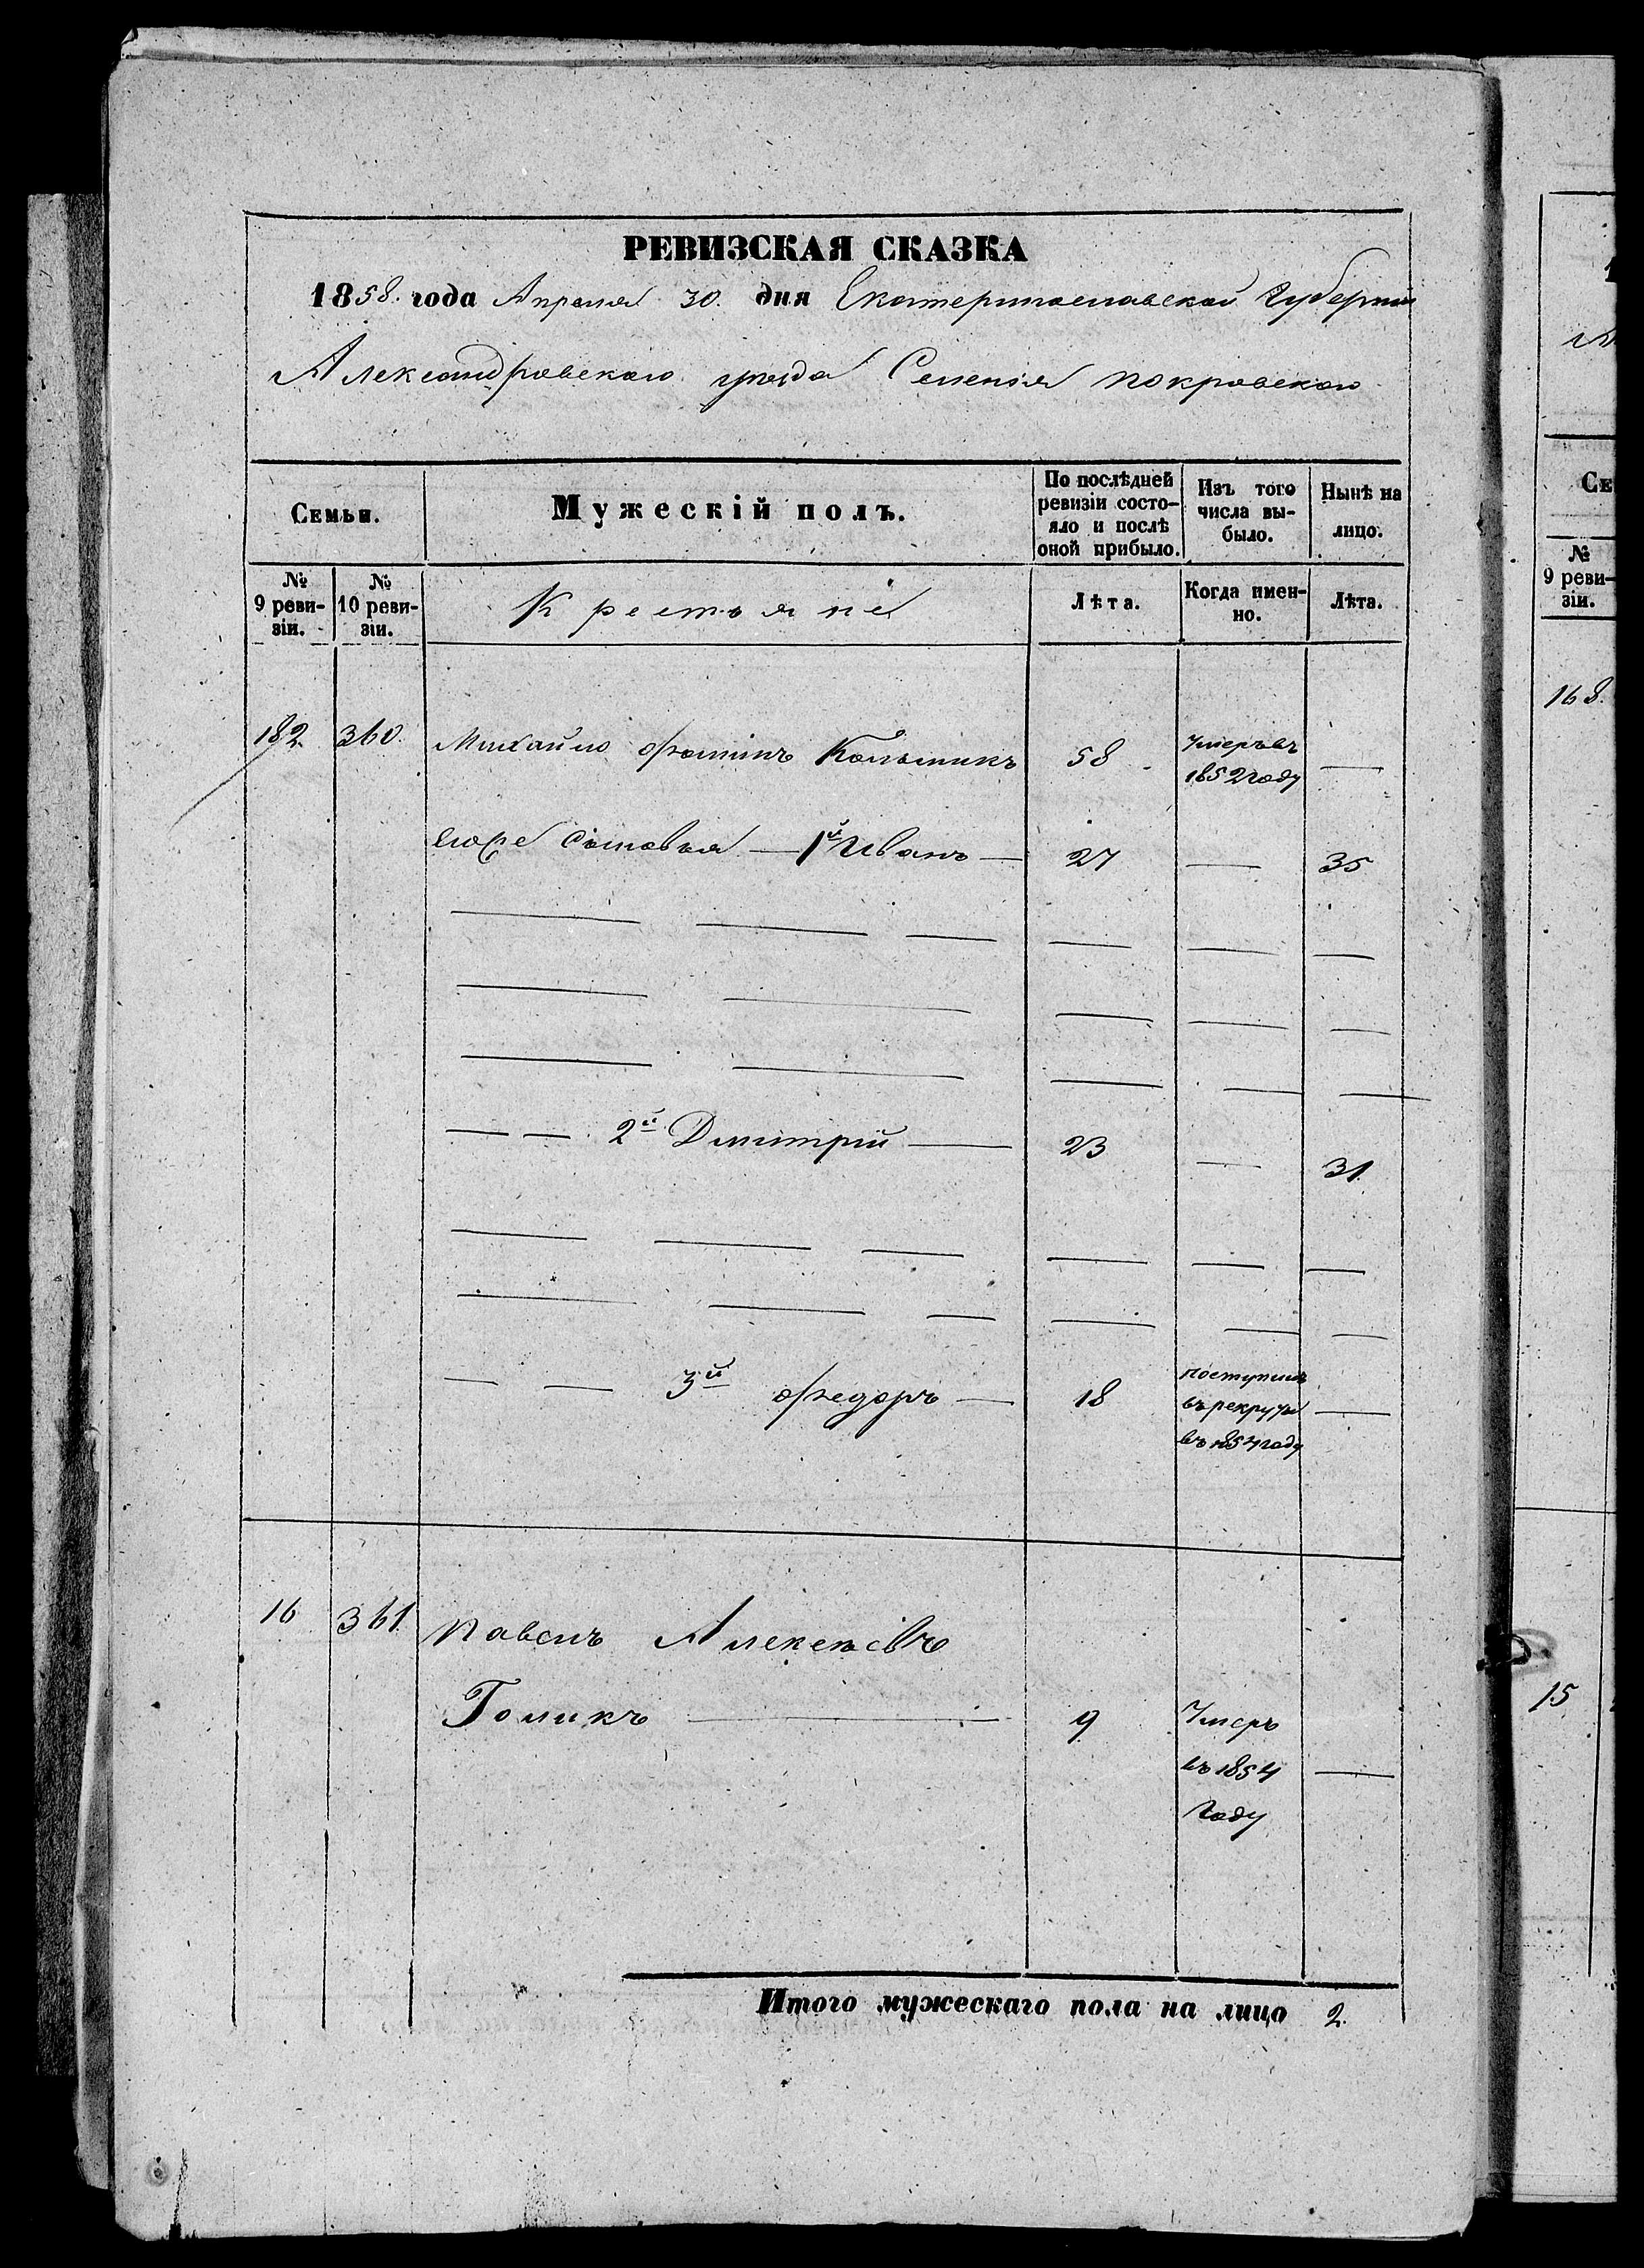 РЕВИЗСКАЯ СКАЗКА
1858. года Апреля 30. дня Екатеринославской Губернии
Александровскаго уезда Селенія покровскаго
Семьи. Мужескій полъ. По послѣдней ревизіи состо-яло и послѣ оной прибыло. Изъ того числа вы-было. Нынѣ на лицо.
№ 9 реви-зіи. № 10 реви-зіи. Крестьяне Лѣта. Когда имен-но. Лѣта.
182. 360. Михайло Фоминъ 58 Умеръ въ 1852 году —
егоже Сыновья — 1й Иванъ — 27 — 35
— — 2й Дмитрій — 23 — 31
— — 3й Федоръ — 18 поступилъ въ рекруты въ 1854 году —
16 361. Павелъ Алексѣевъ
Голикъ — 9 Умеръ въ 1854 году —
Итого мужескаго пола на лицо 2.
Се
№
9 реви-
зіи.
168.
15